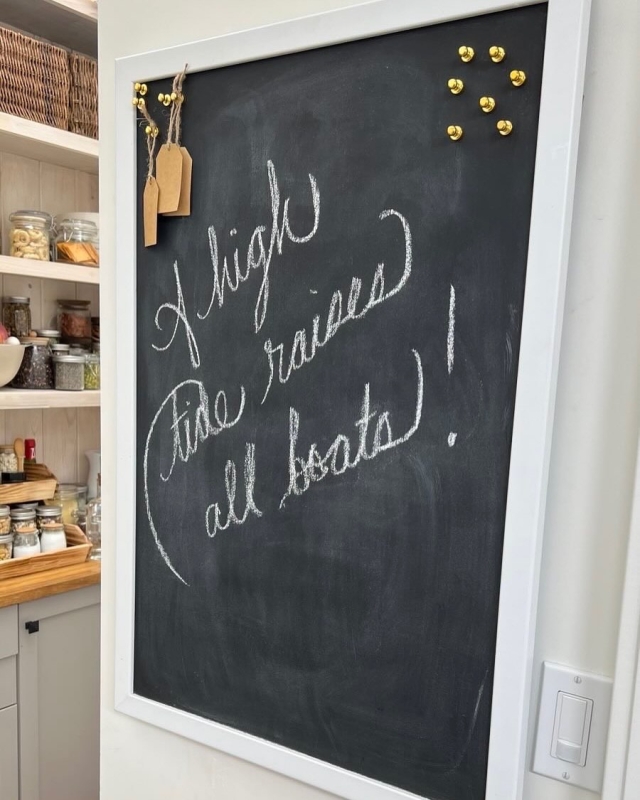 A high
tide raises
all boats!